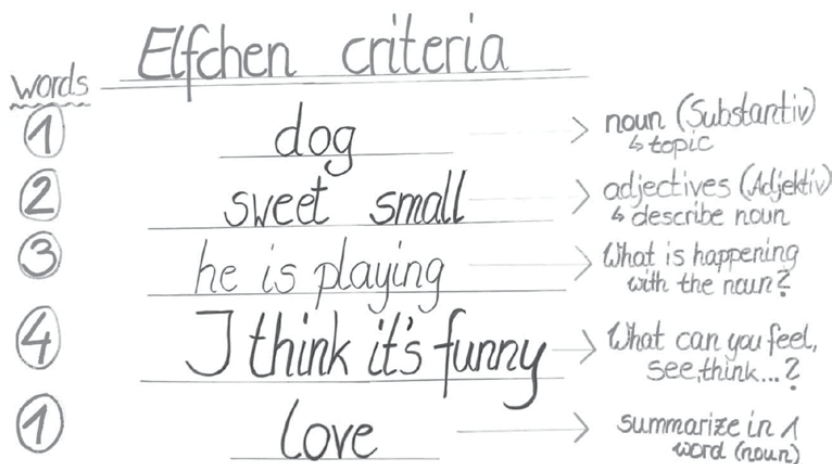 Elfchen criteria
words
① dog → noun (Substantiv)
↳ topic
② sweet small → adjectives (Adjektiv)
↳ describe noun
③ he is playing → What is happening
with the noun?
④ I think it's funny → What can you feel,
see, think...?
① love → summarize in 1
word (noun)